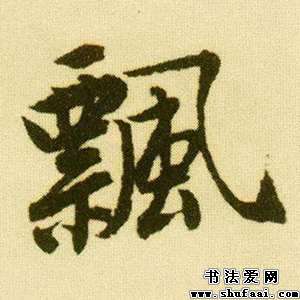 飄
书法爱网
www.shufaai.com